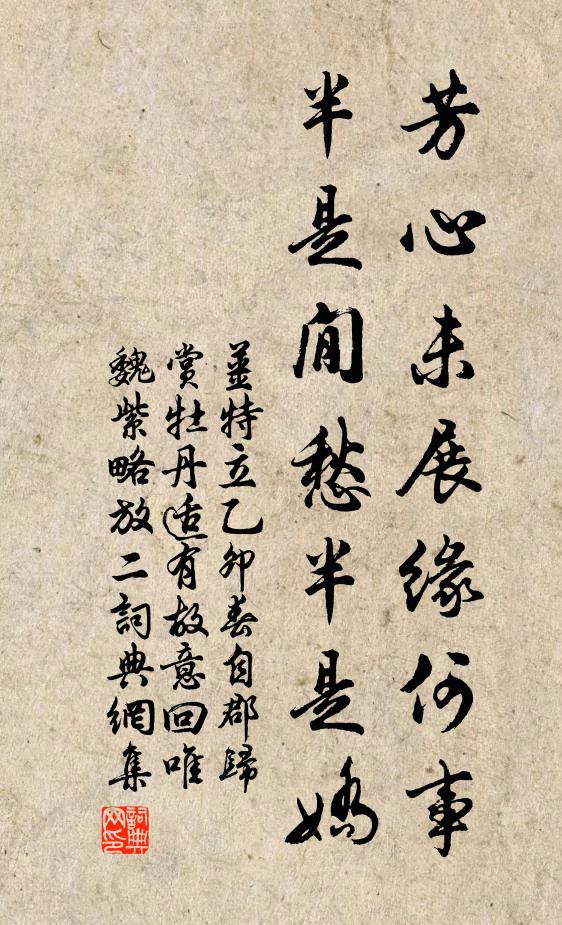 芳心未展緣何事
半是閒愁半是嬌
姜特立乙卯春自郡歸
賞牡丹适有故意回唯
魏紫略放二詞典網集
詞典網印